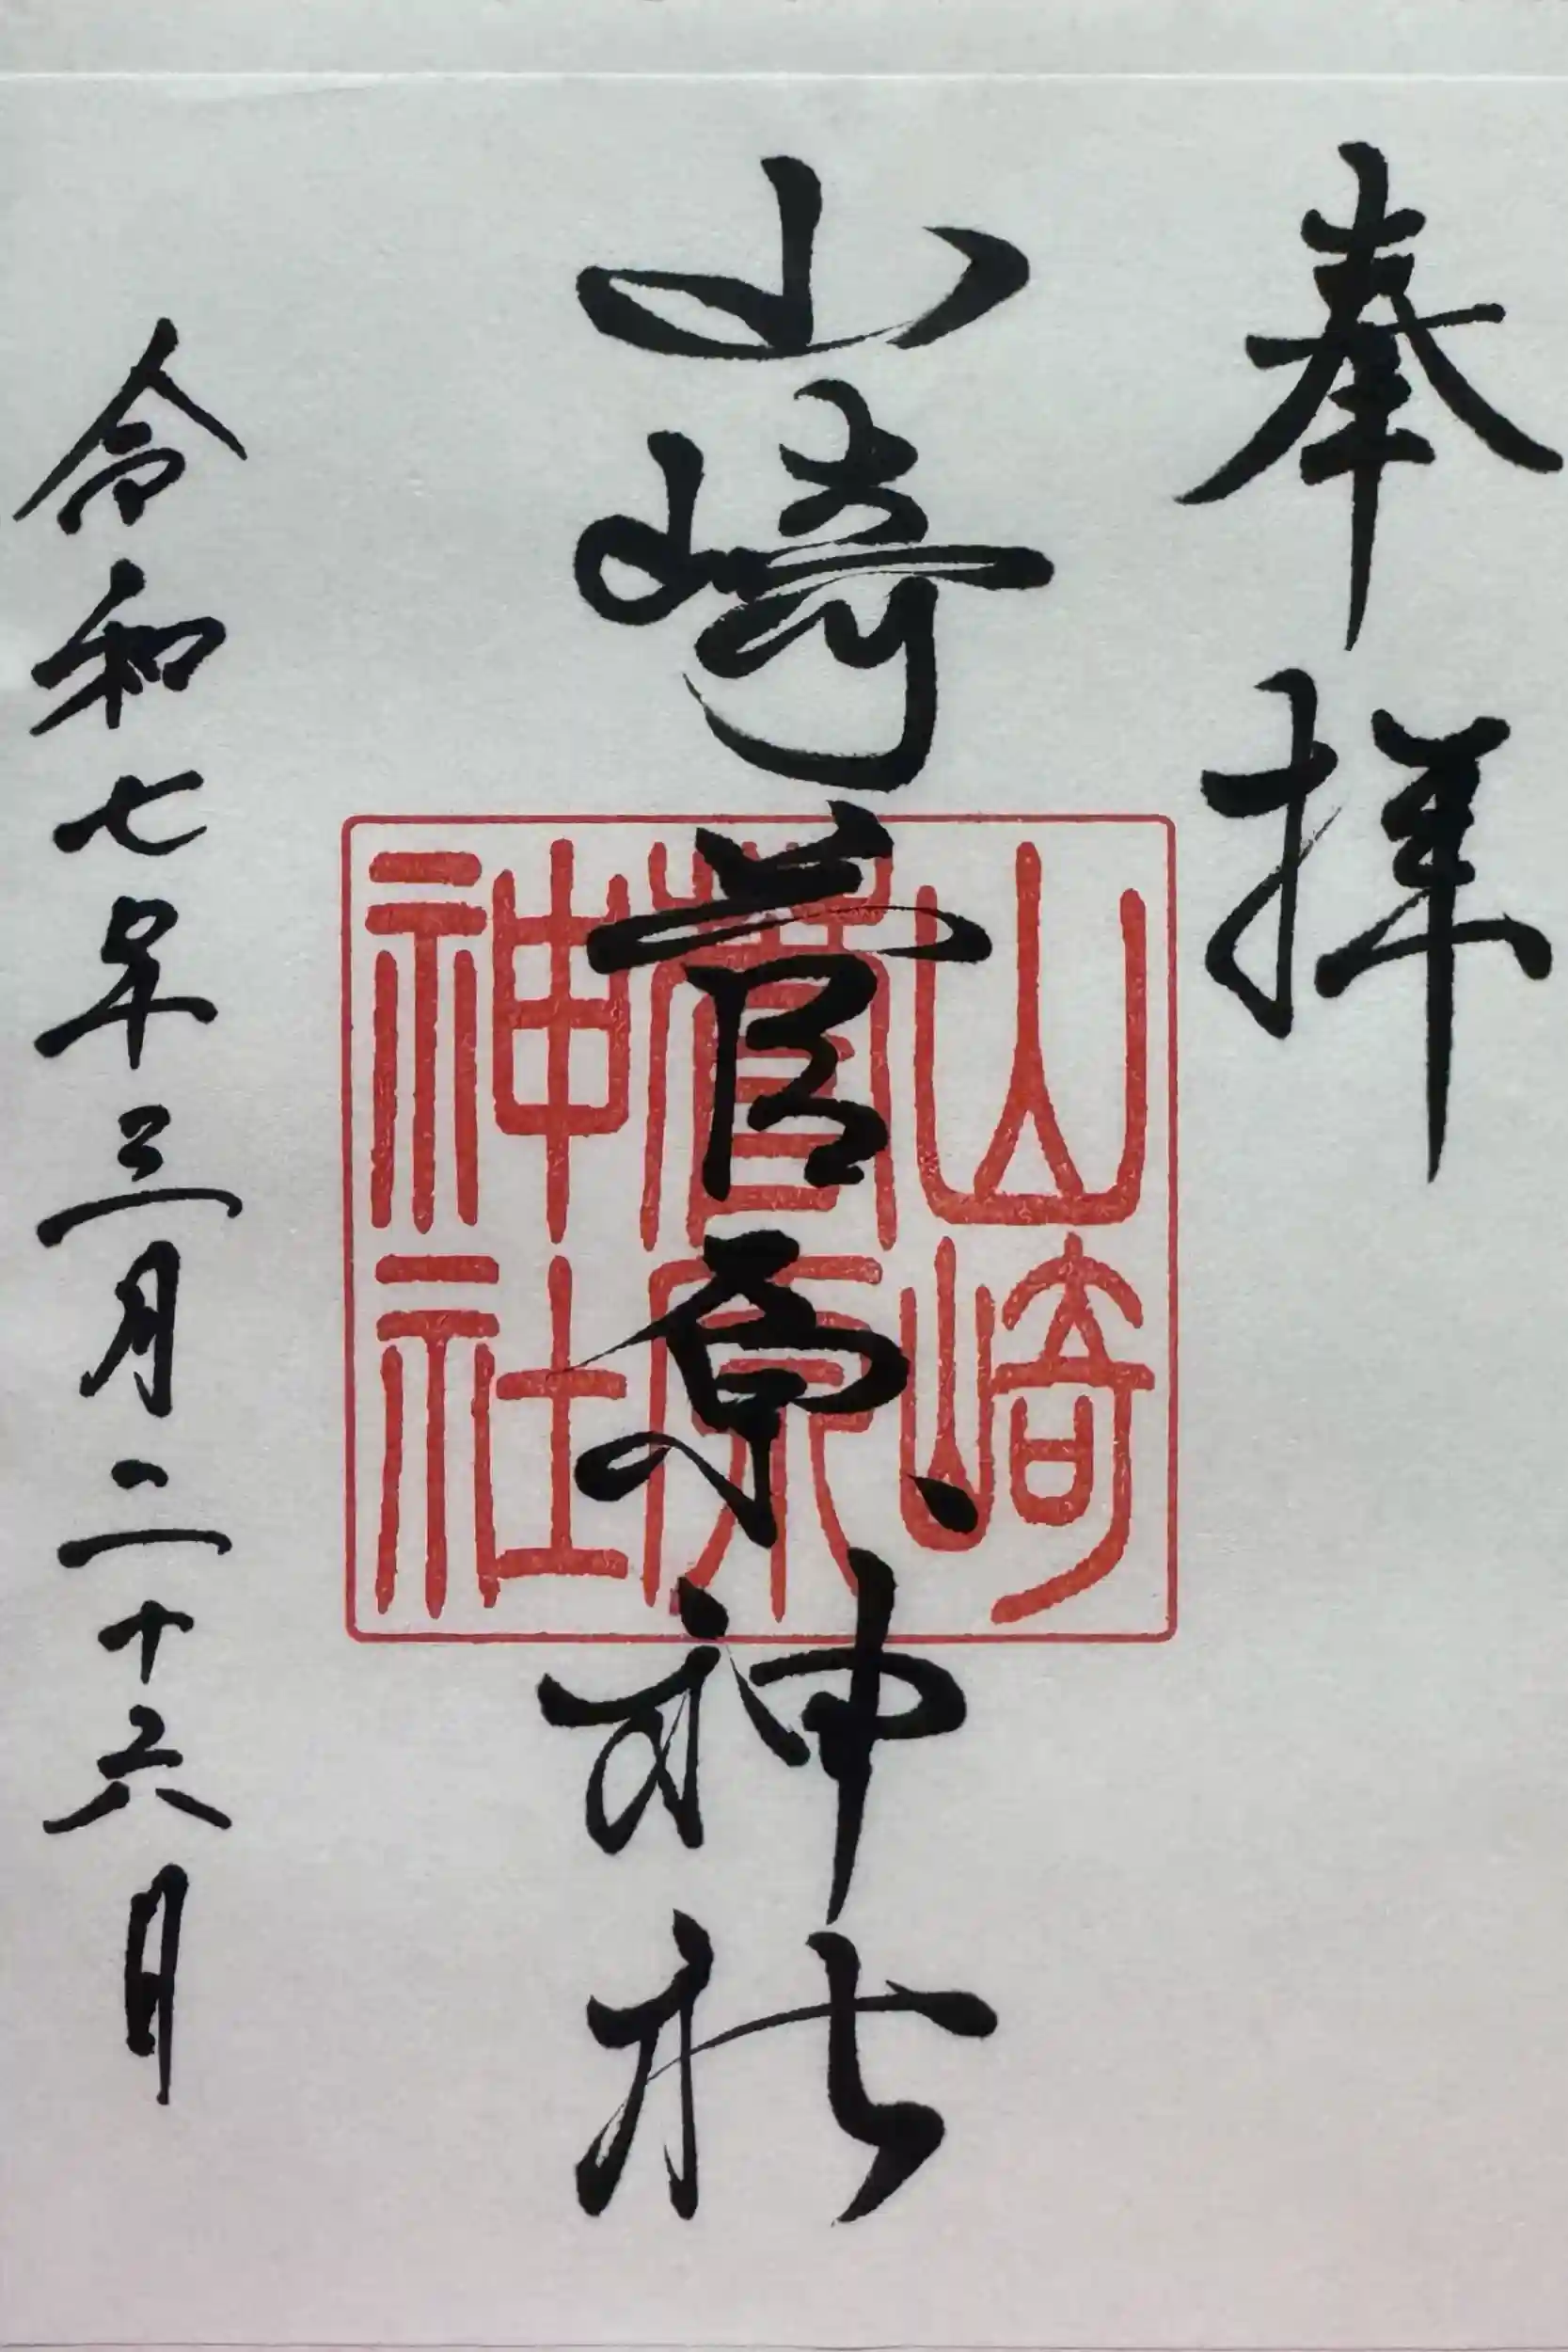 奉拝
山崎菅原神社
山崎
菅原
神社
令和七年三月二十六日